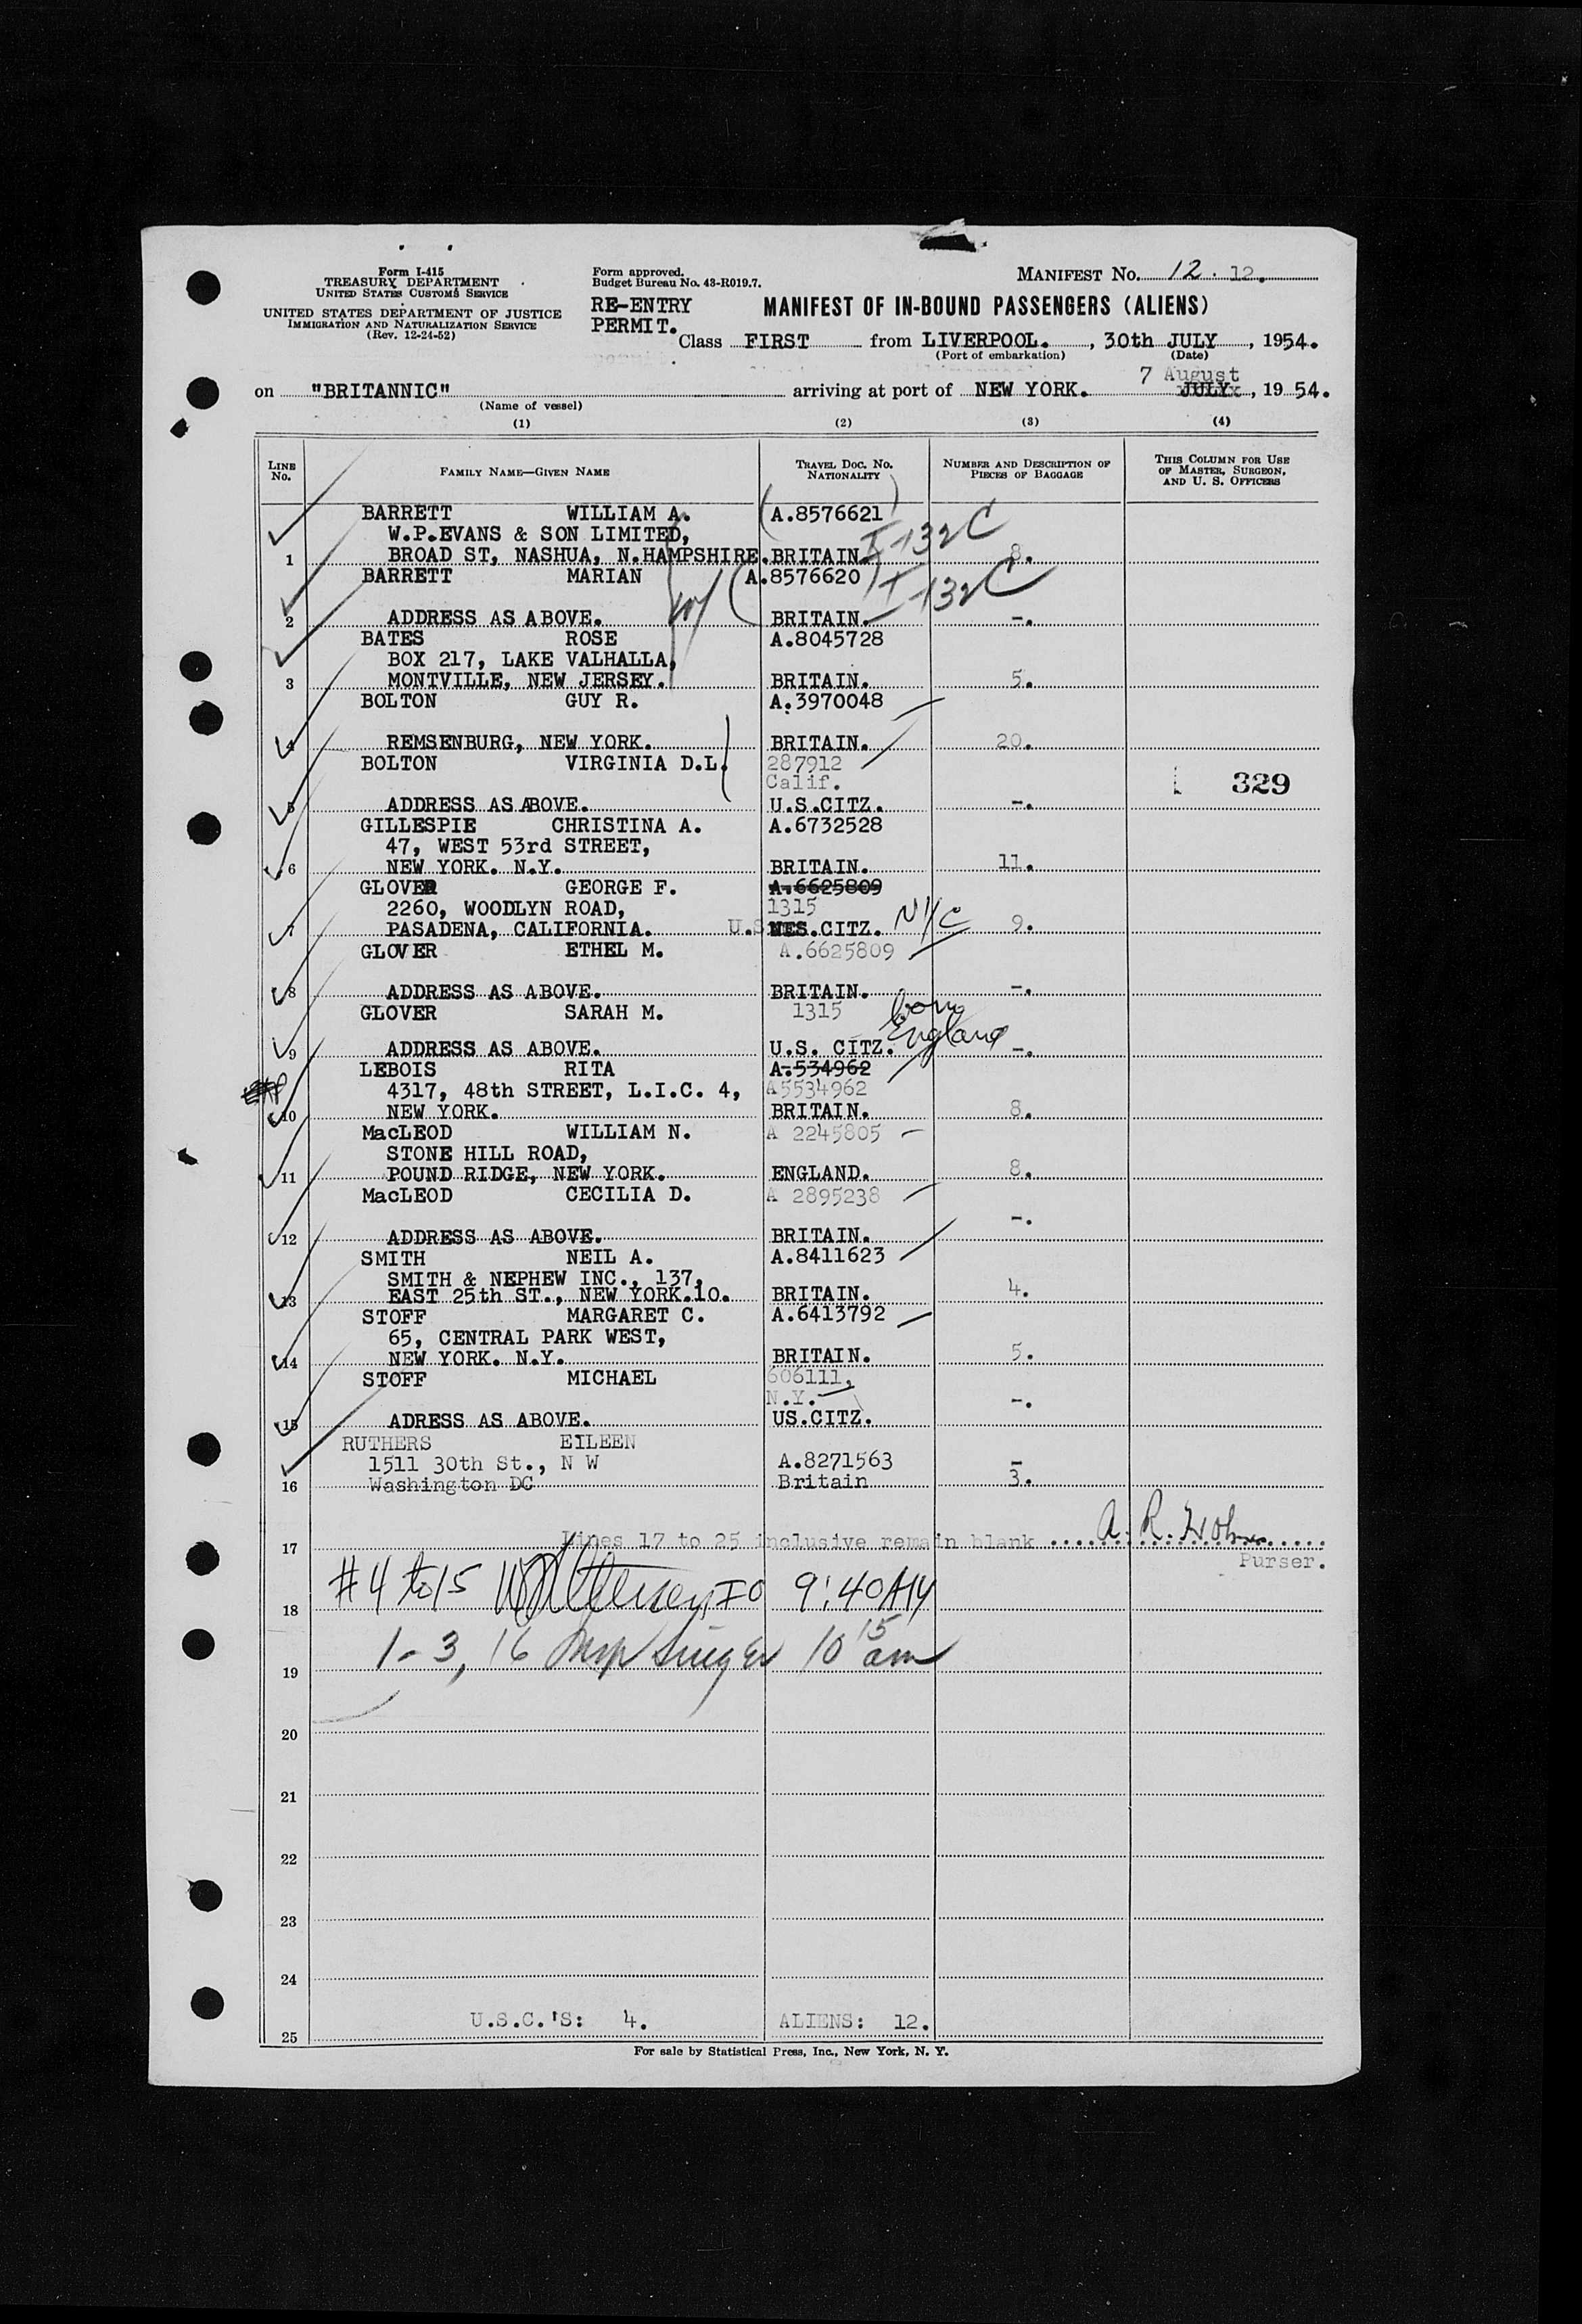 Form I-415
TREASURY DEPARTMENT
UNITED STATES CUSTOMS SERVICE
UNITED STATES DEPARTMENT OF JUSTICE
IMMIGRATION AND NATURALIZATION SERVICE
(Rev. 12-24-52)
Form approved.
Budget Bureau No. 43-R019.7.
RE-ENTRY
PERMIT.
MANIFEST NO. 12. 12.
MANIFEST OF IN-BOUND PASSENGERS (ALIENS)
Class FIRST from LIVERPOOL. , 30th JULY , 1954.
(Port of embarkation) (Date)
7 August
on "BRITANNIC" arriving at port of NEW YORK. JULYx , 19 54.
(Name of vessel)
(1) (2) (3) (4)
LINE NO. FAMILY NAME—GIVEN NAME TRAVEL DOC. NO. NATIONALITY NUMBER AND DESCRIPTION OF PIECES OF BAGGAGE THIS COLUMN FOR USE OF MASTER, SURGEON, AND U. S. OFFICERS
BARRETT WILLIAM A. (A.8576621)
W.P.EVANS & SON LIMITED,
1 BROAD ST, NASHUA, N.HAMPSHIRE. BRITAIN. I-132C 8.
BARRETT MARIAN (A.8576620)
2 ADDRESS AS ABOVE. BRITAIN. I-132C -.
BATES ROSE A.8045728
BOX 217, LAKE VALHALLA,
3 MONTVILLE, NEW JERSEY. BRITAIN. 5.
BOLTON GUY R. A.3970048
4 REMSENBURG, NEW YORK. BRITAIN. 20.
BOLTON VIRGINIA D.L. 287912
Calif.
329
5 ADDRESS AS ABOVE. U.S.CITZ. -.
GILLESPIE CHRISTINA A. A.6732528
47, WEST 53rd STREET,
6 NEW YORK. N.Y. BRITAIN. 11.
GLOVER GEORGE F. A.6625809
2260, WOODLYN ROAD, 1315
7 PASADENA, CALIFORNIA. U.S. CITZ. NYC 9.
GLOVER ETHEL M. A.6625809
8 ADDRESS AS ABOVE. BRITAIN. -.
GLOVER SARAH M. 1315 born
England
9 ADDRESS AS ABOVE. U.S. CITZ. -.
LEBOIS RITA A.534962
4317, 48th STREET, L.I.C. 4, A5534962
10 NEW YORK. BRITAIN. 8.
MacLEOD WILLIAM N. A 2245805
STONE HILL ROAD,
11 POUND RIDGE, NEW YORK. ENGLAND. 8.
MacLEOD CECILIA D. A 2895238
12 ADDRESS AS ABOVE. BRITAIN. -.
SMITH NEIL A. A.8411623
SMITH & NEPHEW INC., 137,
13 EAST 25th ST., NEW YORK.10. BRITAIN. 4.
STOFF MARGARET C. A.6413792
65, CENTRAL PARK WEST,
14 NEW YORK. N.Y. BRITAIN. 5.
STOFF MICHAEL 606111,
N.Y.
15 ADRESS AS ABOVE. US.CITZ. -.
RUTHERS EILEEN
1511 30th St., N W A.8271563
16 Washington DC Britain 3.
17 Lines 17 to 25 inclusive remain blank .... A. R.
Purser.
18 #4 to 15 IO 9:40 AM
19 1-3, 16 Insp Singer 10 15 am
20
21
22
23
24
U.S.C.'S: 4. ALIENS: 12.
25
For sale by Statistical Press, Inc., New York, N. Y.